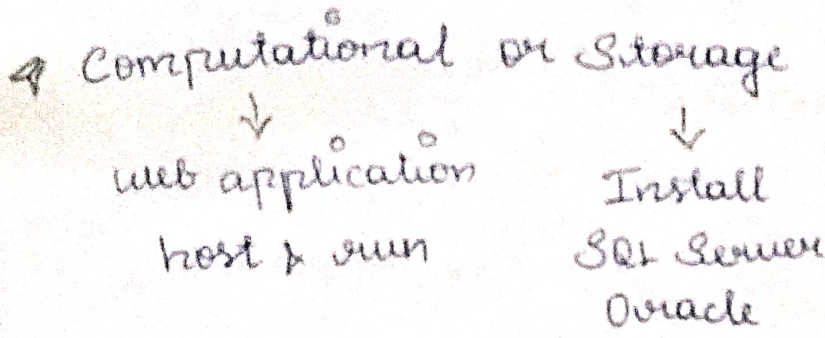 Computational or Storage
↓ ↓
web application Install
host & run SQL Server
Oracle